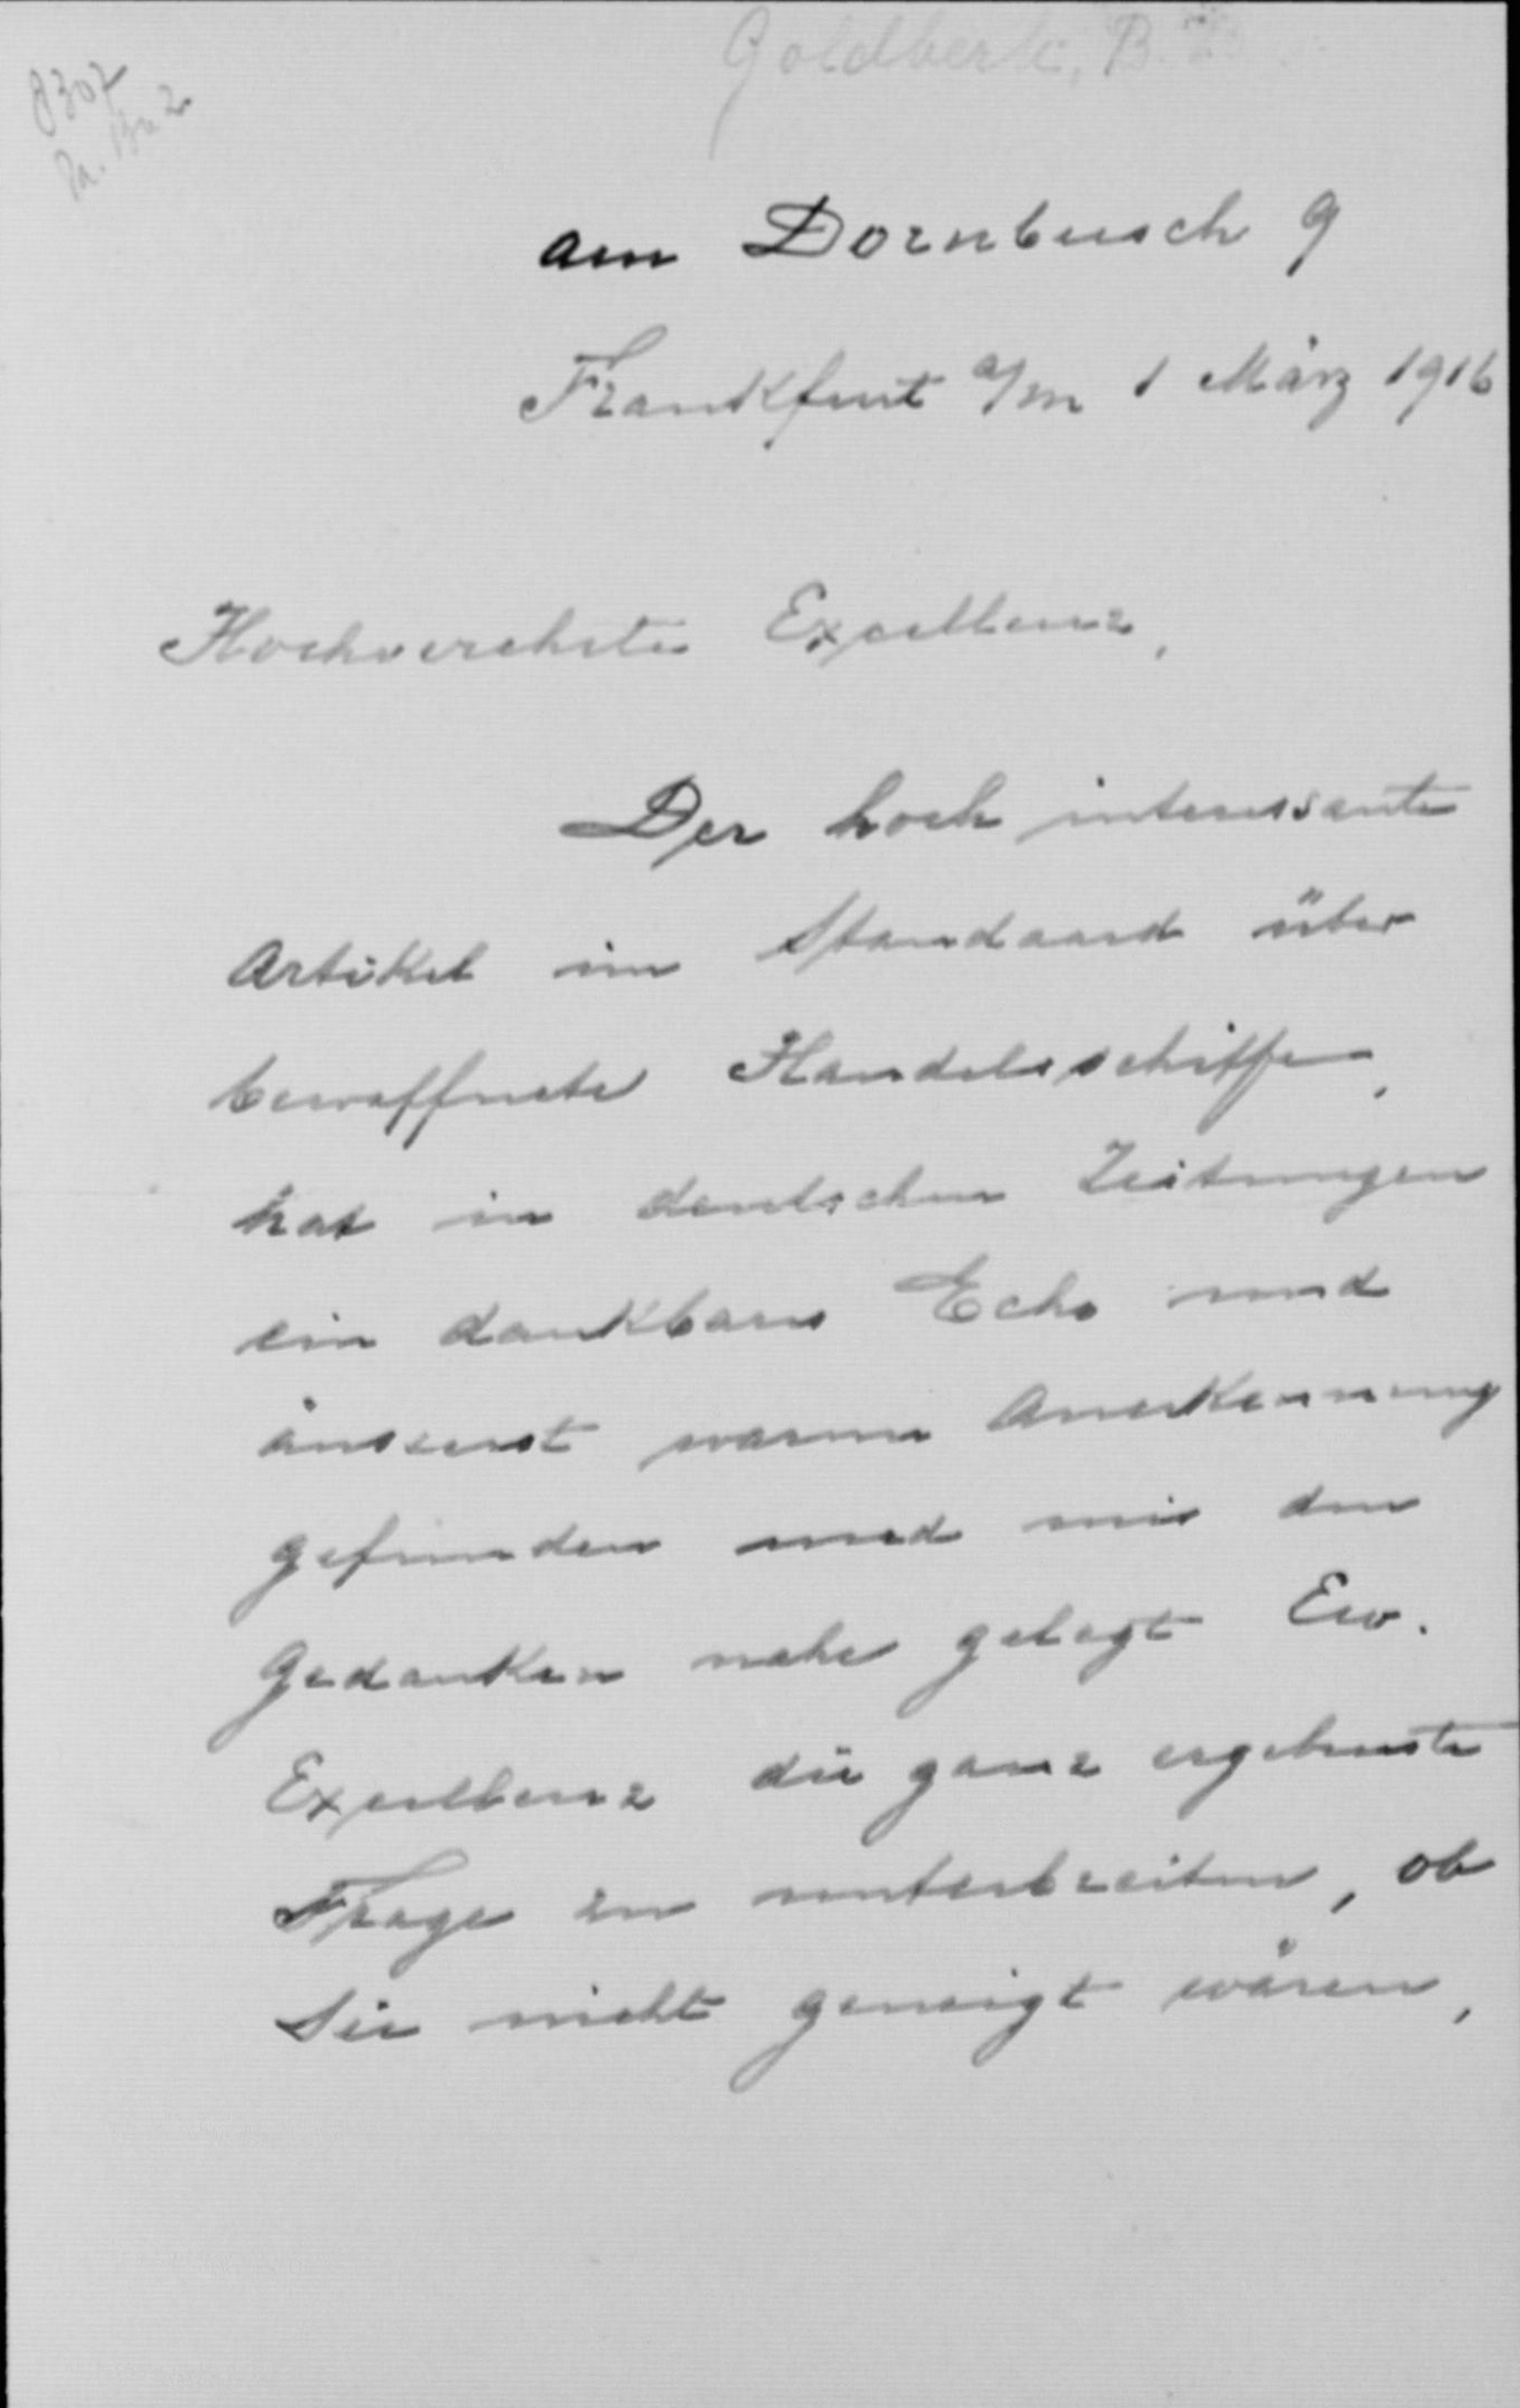 8307
Goldbeck, B.
am Dornbusch 9
Frankfurt a/m 1 März 1916
Hochverehrte Excellenz,
Der hoch interessante
Artikel im Standaard über
bewaffnete Handelsschiffe,
hat in deutschen Zeitungen
ein dankbares Echo und
äusserst warme Anerkennung
gefunden und mir den
Gedanken nahe gelegt Ew.
Excellenz die ganz ergebenste
Frage zu unterbreiten, ob
Sie nicht geneigt wären,